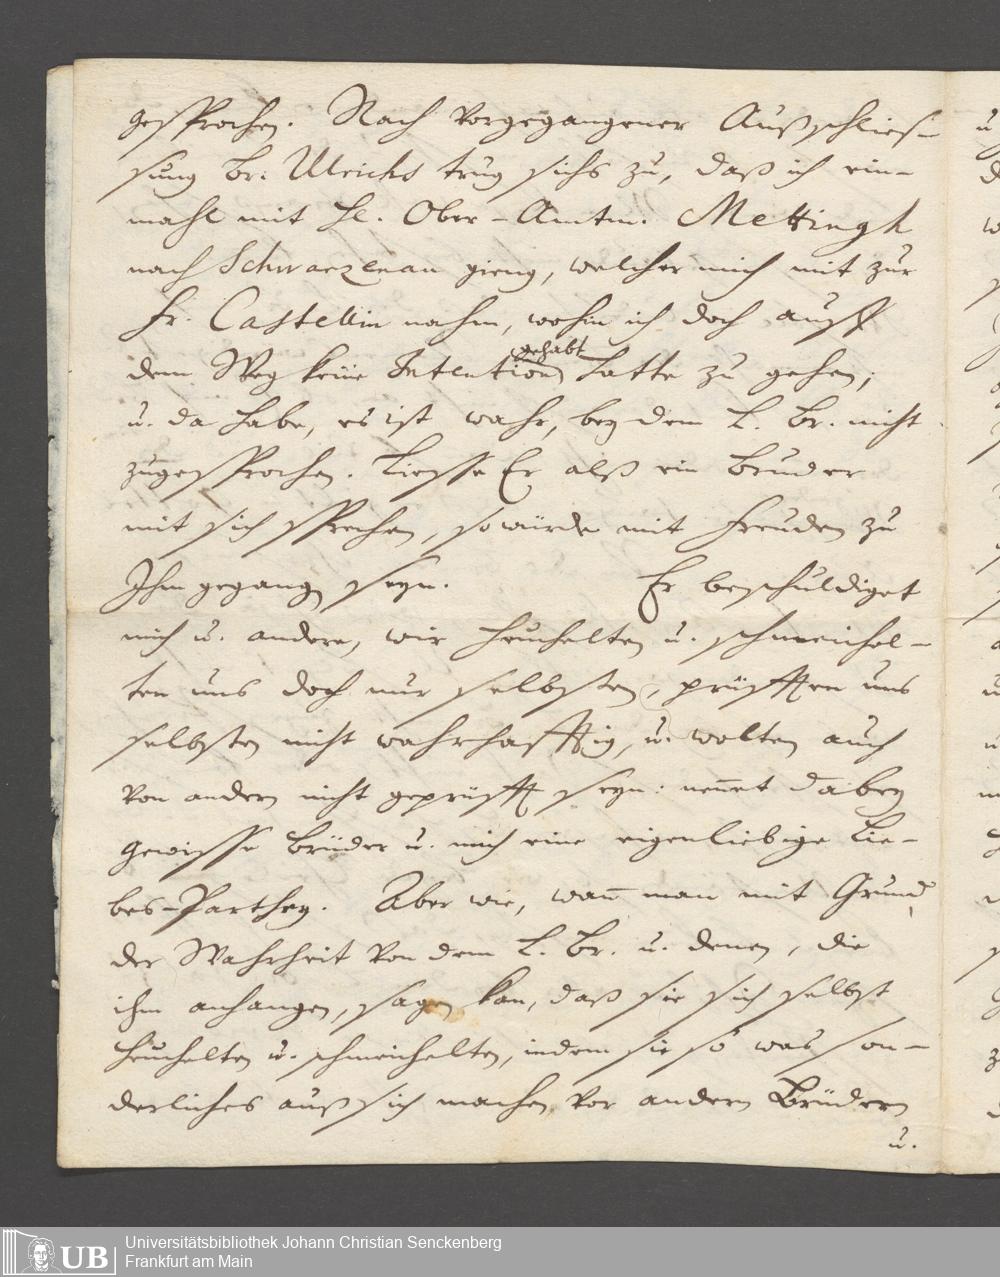 gesprochen. Nach vorgegangener Außschlies-
sung Br. Ulrichs trug sichs zu, daß ich ein-
mahl mit H. Ober-Amtm. Mettingh
nach Schwarzenau gieng, welcher mich mit zur
Fr. Castellin nahm, wohin ich doch auff
gehabt
dem Weg keine Intention hatte zu gehen;
u. da habe, es ist wahr, bey dem L. Br. nicht
zugesprochen. Liesse Er alß ein Bruder
mit sich sprechen, so würde mit Freuden zu
Ihm gegangen seyn. Er beschuldiget
mich u. andere, wir heuchelten u. schmeichel-
ten uns doch nur selbsten, prüfften uns
selbsten nicht wahrhafftig, u. wolten auch
von andern nicht geprüfft seyn: nennet dabey
gewisse Brüder u. mich eine eigenliebige Lie-
bes-Parthey. Aber wie, wann man mit Grund
der Wahrheit von dem L. Br. u. denen, die
ihm anhangen, sagen kan, daß sie sich selbst
heuchelten u. schmeichelten, indem sie so was son-
derliches auß sich machen vor andern Brüdern
u.
UB
Universitätsbibliothek Johann Christian Senckenberg
Frankfurt am Main